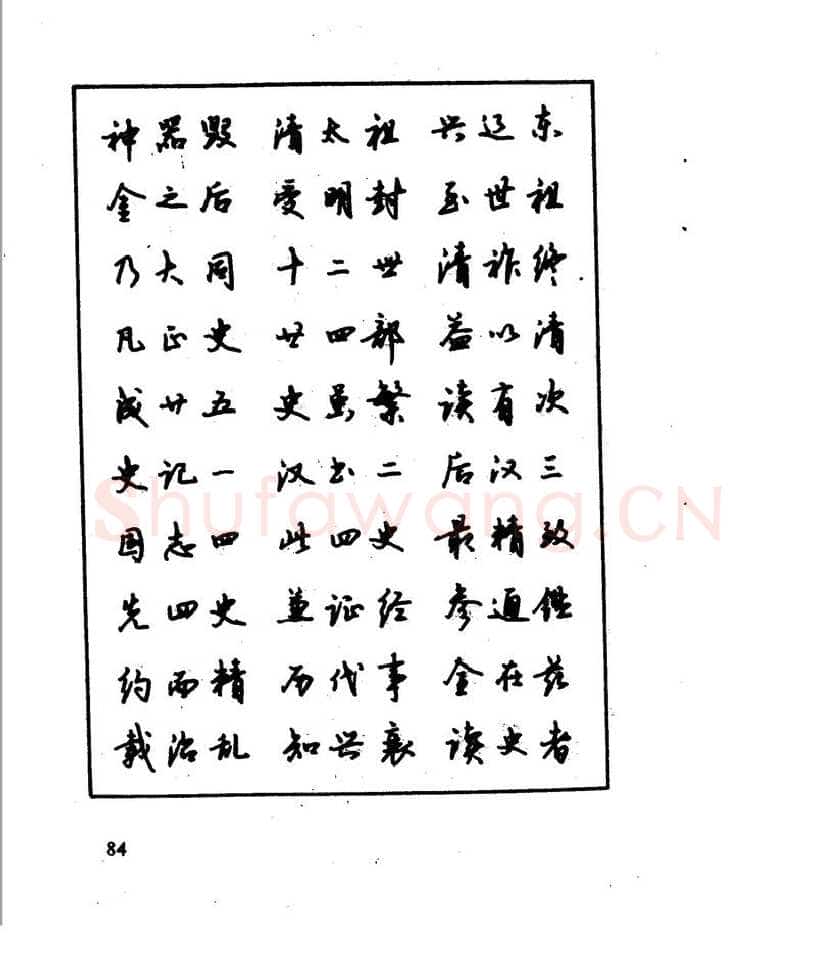 神器毁 清太祖 兴辽东
金之后 受明封 至世祖
乃大同 十二世 清祚终
凡正史 廿四部 益以清
成廿五 史虽繁 读有次
史记一 汉书二 后汉三
国志四 此四史 最精致
先四史 兼证经 参通鉴
约而精 历代事 全在兹
载治乱 知兴衰 读史者
Shufawang.CN
84